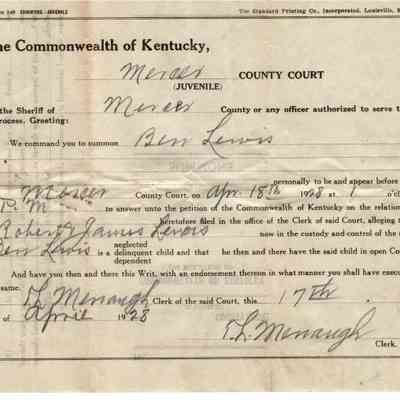 140 SUMMONS—JUVENILE The Standard Printing Co., Incorporated, Louisville,
he Commonwealth of Kentucky,
Mercer COUNTY COURT
(JUVENILE)
the Sheriff of Mercer County or any officer authorized to serve t
rocess, Greeting:
We command you to summon Ben Lewis
personally to be and appear before
Mercer County Court, on Apr 18th 1928 at 1 o'cl
P. M to answer unto the petition of the Commonwealth of Kentucky on the relation
heretofore filed in the office of the Clerk of said Court, alleging t
Robert & James Lewis now in the custody and control of the
neglected
Ben Lewis is a delinquent child and that he then and there have the said child in open Co
dependent
And have you then and there this Writ, with an endorsement thereon in what manner you shall have execu
same.
T. L. Menaugh Clerk of the said Court, this 17th
of April 1928
T. L. Menaugh
Clerk.